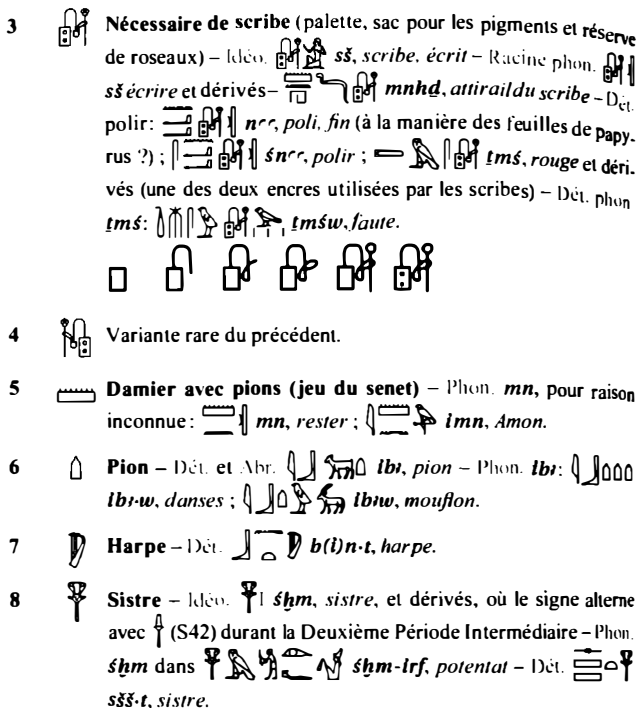 3 Nécessaire de scribe (palette, sac pour les pigments et réserve
de roseaux) – Idéo. sš, scribe, écrit – Racine phon.
sš écrire et dérivés – mnhḏ, attirail du scribe – Dét.
polir: nꜥꜥ, poli, fin (à la manière des feuilles de papy-
rus ?) ; śnꜥꜥ, polir ; ṯmś, rouge et déri-
vés (une des deux encres utilisées par les scribes) – Dét. phon
ṯmś: ṯmśw, faute.
4 Variante rare du précédent.
5 Damier avec pions (jeu du senet) – Phon. mn, pour raison
inconnue: mn, rester ; ỉmn, Amon.
6 Pion – Dét. et Abr. ỉbꜣ, pion – Phon. ỉbꜣ:
ỉbꜣ·w, danses ; ỉbꜣw, mouflon.
7 Harpe – Dét. b(ỉ)n·t, harpe.
8 Sistre – Idéo. śḫm, sistre, et dérivés, où le signe alterne
avec (S42) durant la Deuxième Période Intermédiaire – Phon.
śḫm dans śḫm-ỉrf, potentat – Dét.
sšš·t, sistre.